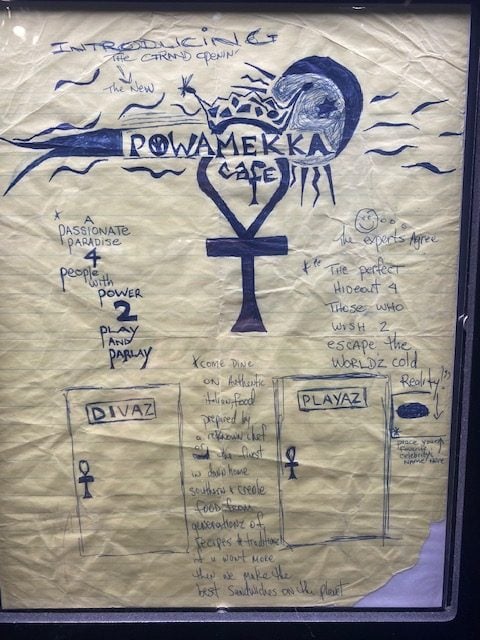 INTRODUCING
THE GRAND OPENIN
The New
POWAMEKKA
cafe
* A
PASSIONATE
PARADISE
4
people
with
POWER
2
PLAY
AND
PARLAY
The experts Agree
* "The perfect
HIDEOUT 4
THOSE WHO
WISH 2
escape the
WORLDZ cold
Reality"
DIVAZ
* COME DINE
ON Authentic
italian food
prepared by
a
chef
of the finest
in down home
southern & creole
FOOD from
generationz of
recipes & traditions
if u want more
then we make the
best sandwiches on the planet
PLAYAZ
* place your
favorite
celebrity
NAME here